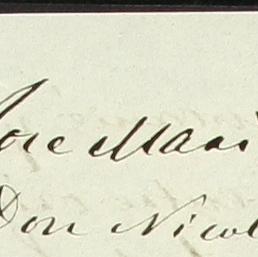 Jose Mari
Don Nicol